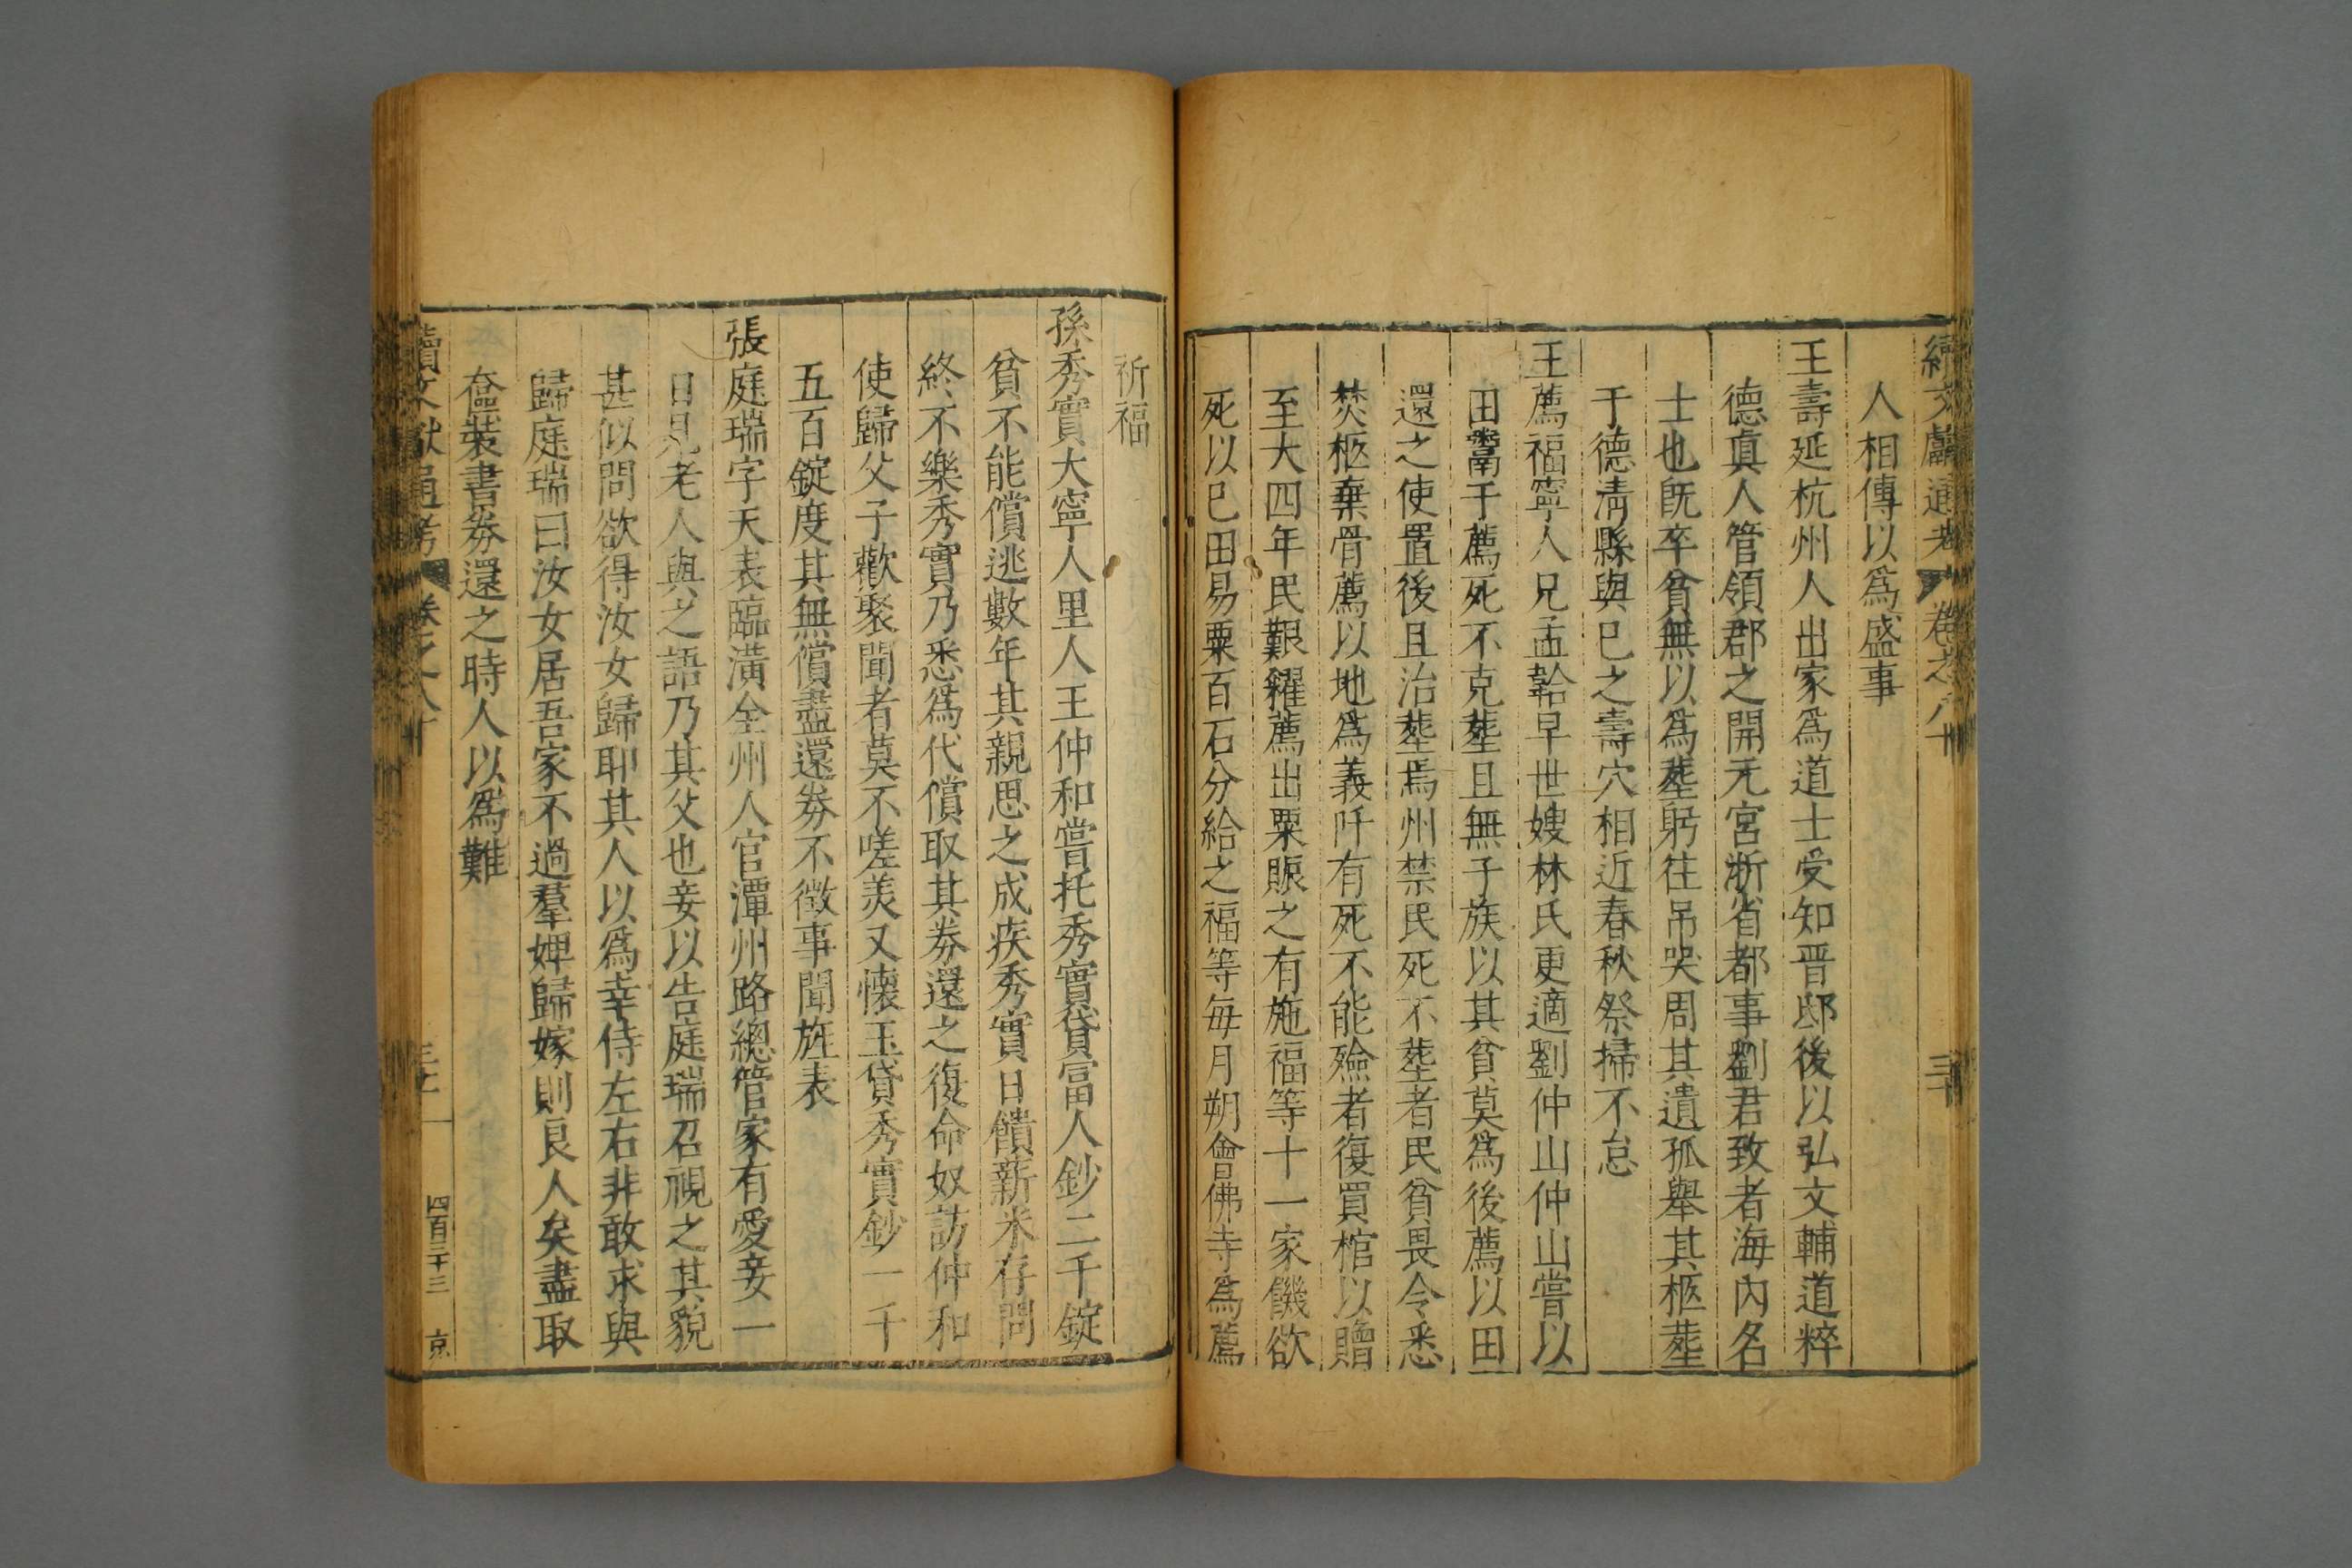 續文獻通考 卷之八十 三十
人相傳以爲盛事
王壽延杭州人出家爲道士受知晋邸後以弘文輔道粹
德真人管領郡之開元宮浙省都事劉君致者海內名
士也旣卒貧無以爲塟躬往吊哭周其遺孤舉其柩塟
于德淸縣與巳之壽穴相近春秋祭掃不怠
王薦福寧人兄孟韐早世嫂林氏更適劉仲山仲山嘗以
田鬻于薦死不克塟且無子族以其貧莫爲後薦以田
還之使置後且治塟焉州禁民死不塟者民貧畏令悉
焚柩棄骨薦以地爲義阡有死不能殮者復買棺以贈
至大四年民艱糴薦出粟賑之有施福等十一家饑欲
死以巳田易粟百石分給之福等每月朔會佛寺爲薦
祈福
孫秀實大寧人里人王仲和嘗托秀實貸富人鈔二千錠
貧不能償逃數年其親思之成疾秀實日饋薪米存問
終不樂秀實乃悉爲代償取其劵還之復命奴訪仲和
使歸父子歡聚聞者莫不嗟羨又懷玉貸秀實鈔一千
五百錠度其無償盡還劵不徵事聞旌表
張庭瑞字天表臨潢全州人官潭州路總管家有愛妾一
日見老人與之語乃其父也妾以告庭瑞召視之其貌
甚似問欲得汝女歸耶其人以爲幸侍左右非敢求與
歸庭瑞曰汝女居吾家不過羣婢歸嫁則良人矣盡取
奩裝書劵還之時人以爲難
續文獻通考 卷之八十 四百三十三 京